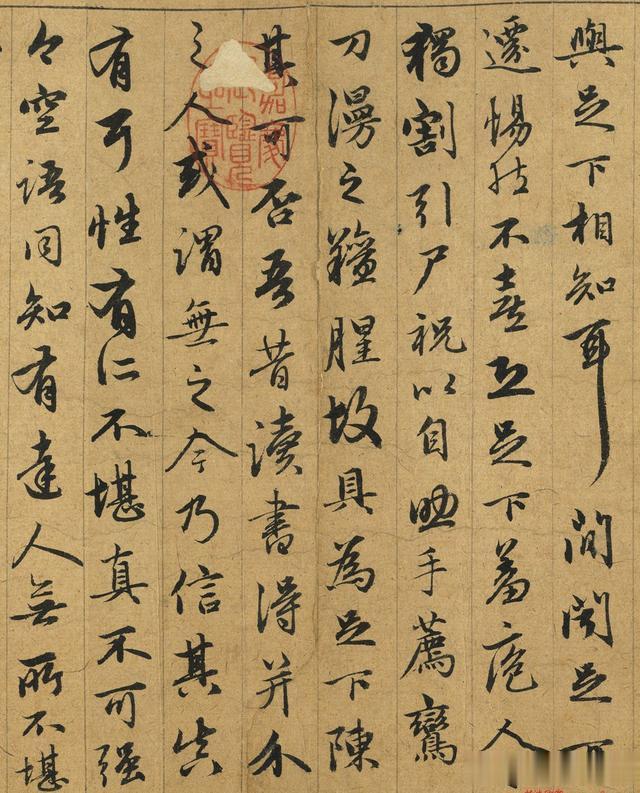 與足下相知耳間聞足下
遷惕然不喜恐足下羞庖人
獨割引尸祝以自助手薦鸞
刀漫之羶腥故具為足下陳
其可否吾昔讀書得并介
之人或謂無之今乃信其真
有耳性有所不堪真不可强
今空語同知有達人無所不堪